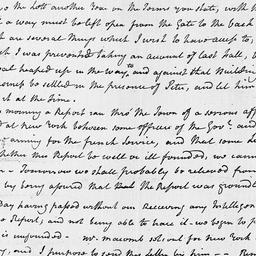 to the Lott another Year on the Terms you state, with th
a way must be left open from the Gate to the back
are several things which I wish to have access to,
I was prevented taking an account of last Fall,
heaped up in the way, and against that Building
to be selled in the presence of Peter, and let him
at the time.
morning a Report ran thro' the Town of a serious aff
at New York between some officers of the Gov.t and
arming for the French Service, and that some
whether the Report be well or ill founded, we cann
— Tomorrow we shall probably be relieved from
by being assured that the Report was groundl
Day having passed without our Receiving any Intelligen
Report, and not being able to trace it — we begin to
is unfounded. — Mr. Macomb set out for New York
and I purpose to send this Letter by him —